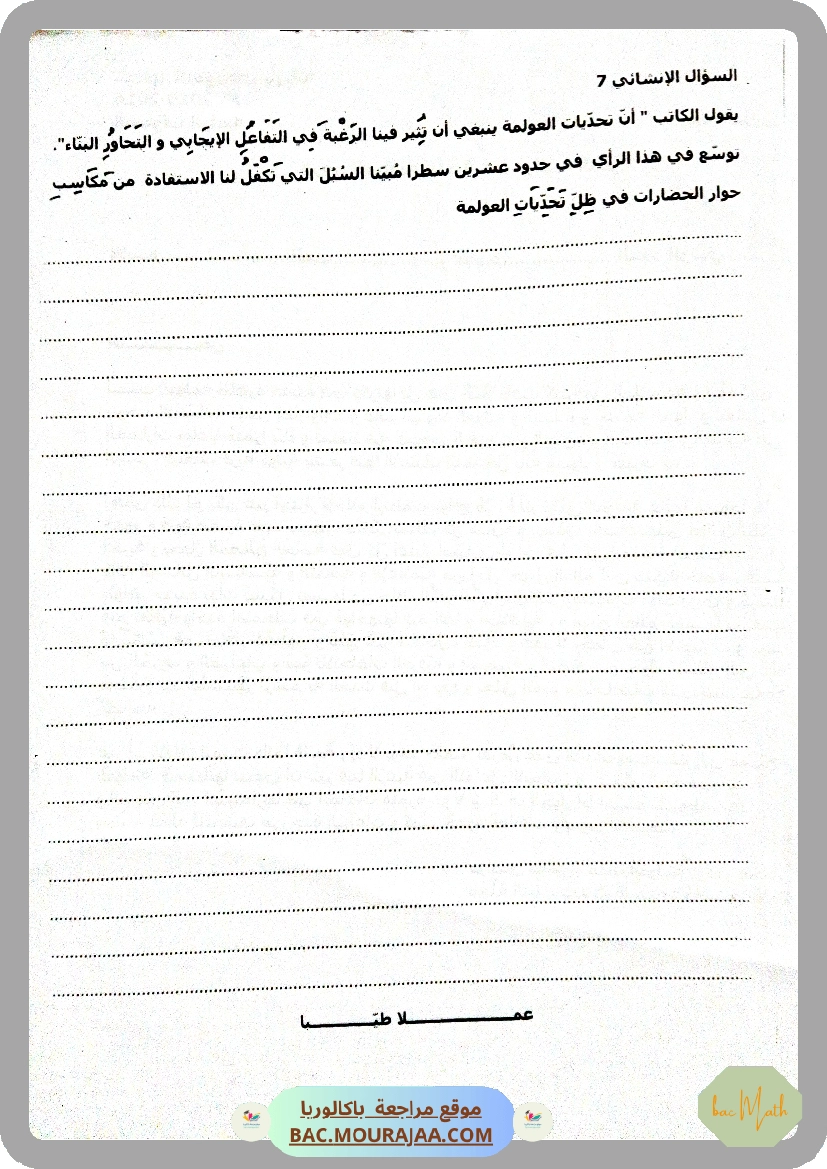 السؤال الإنشائي 7
يقول الكاتب " أنّ تحدّيات العولمة ينبغي أن تُثِير فينا الرَغْبة َفي التَفَاعُلِ الإيجَابِي و التَحَاوُرِ البنّاء".
توسّع في هذا الرأي في حدود عشرين سطرا مُبيّنا السُبُلَ التي َتكْفَلُ لنا الاستفادة من َمكَاسِبِ
حوار الحضارات في ظِلِّ تَحَدِّيَاتِ العولمة
عمـــــــــــــــــلا طيّـــــــــــبا
موقع مراجعة باكالوريا
BAC.MOURAJAA.COM
bac Math